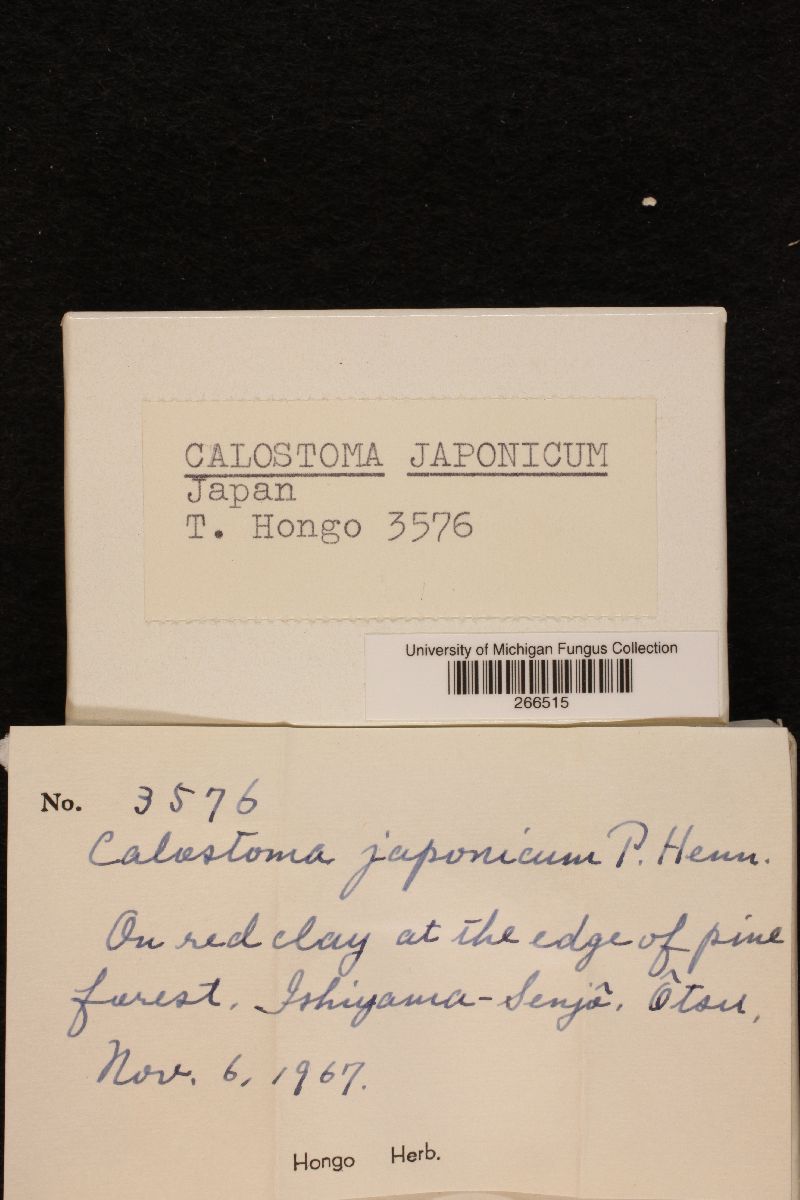 CALOSTOMA JAPONICUM
Japan
T. Hongo 3576
University of Michigan Fungus Collection
266515
No. 3576
Calostoma japonicum P. Henn.
On red clay at the edge of pine
forest. Ishiyama-Senjô. Ôtsu,
Nov. 6, 1967.
Hongo Herb.